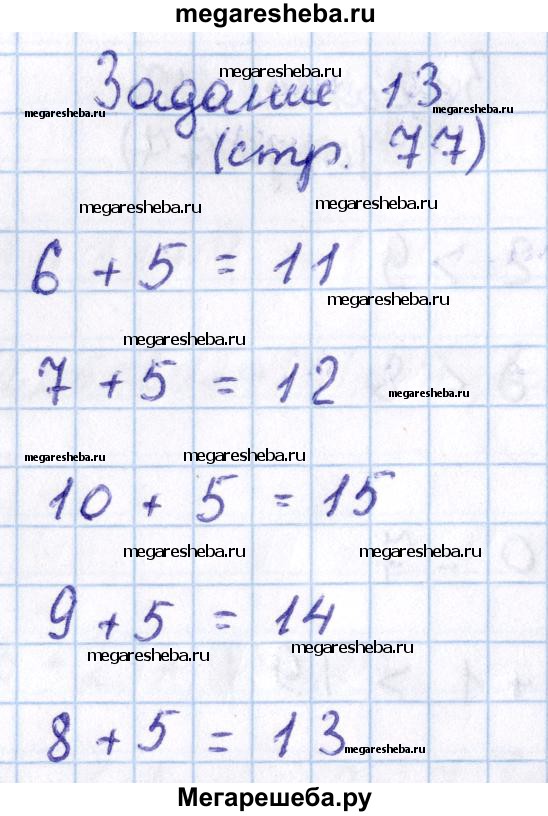 megaresheba.ru
megaresheba.ru
Задание 13
megaresheba.ru megaresheba.ru
(стр. 77)
megaresheba.ru megaresheba.ru
6 + 5 = 11
megaresheba.ru
megaresheba.ru
7 + 5 = 12
megaresheba.ru
megaresheba.ru megaresheba.ru
10 + 5 = 15
megaresheba.ru megaresheba.ru
9 + 5 = 14
megaresheba.ru megaresheba.ru
8 + 5 = 13
megaresheba.ru
Мегарешеба.ру